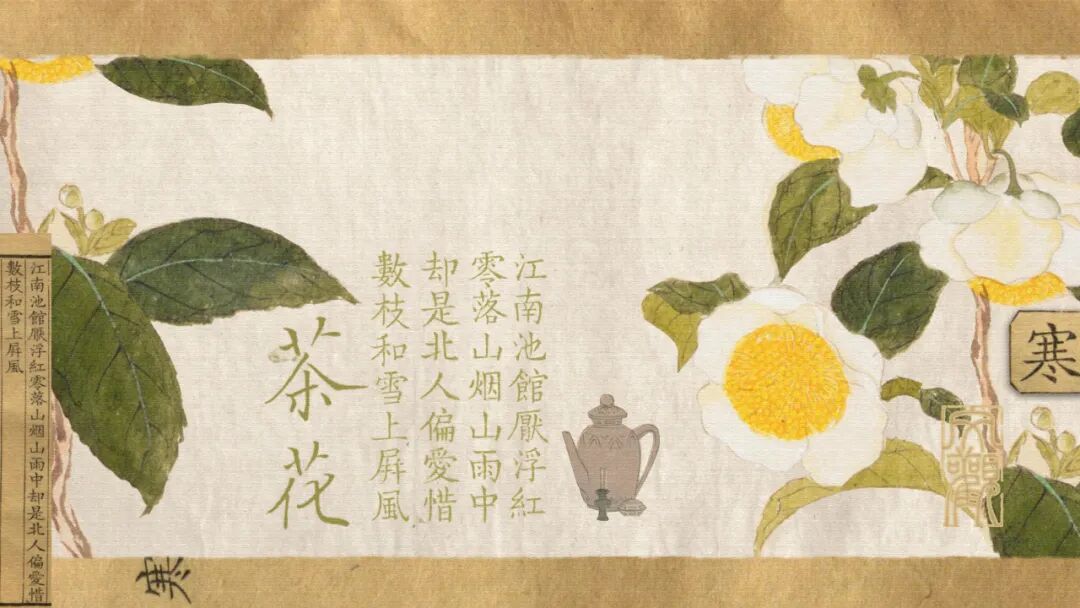 江南池館厭浮紅
零落山烟山雨中
却是北人偏愛惜
數枝和雪上屏風
茶花
寒
江南池館厭浮紅零落山烟山雨中却是北人偏愛惜
數枝和雪上屏風
寒